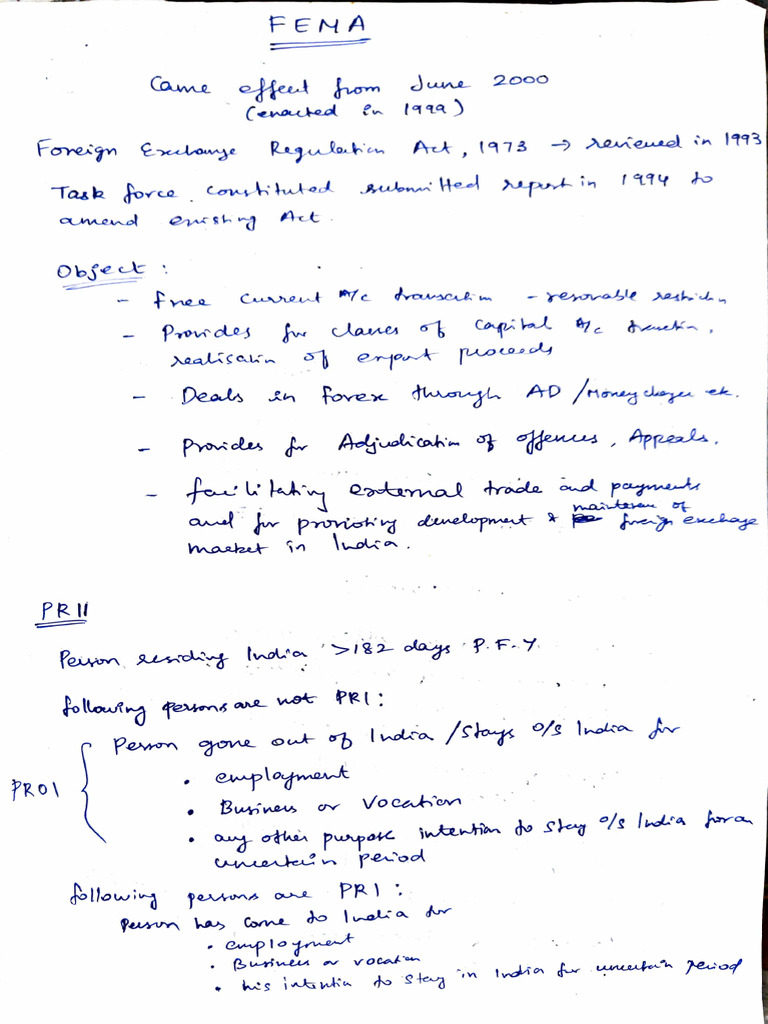 FEMA
Came effect from June 2000
(enacted in 1999)
Foreign Exchange Regulation Act, 1973 → reviewed in 1993
Task force constituted submitted report in 1994 to
amend existing Act.
Object :
- Free Current A/c transaction - resonable restriction
- Provides for classes of Capital A/c transaction,
realisation of export proceeds
- Deals in forex through AD / Moneychager etc.
- Provides for Adjudication of offences, Appeals.
- facilitating external trade and payments
and for promoting development & maintenance of foreign exchange
market in India.
PRII
Person residing India >182 days P.F.Y
following persons are not PRI :
Person gone out of India / stays o/s India for
PROI
• employment
• Business or Vocation
• any other purpose intention to stay o/s India for an
uncertain period
following persons are PRI :
Person has come to India for
• employment
• Business or vocation
• his intention to stay in India for uncertain period